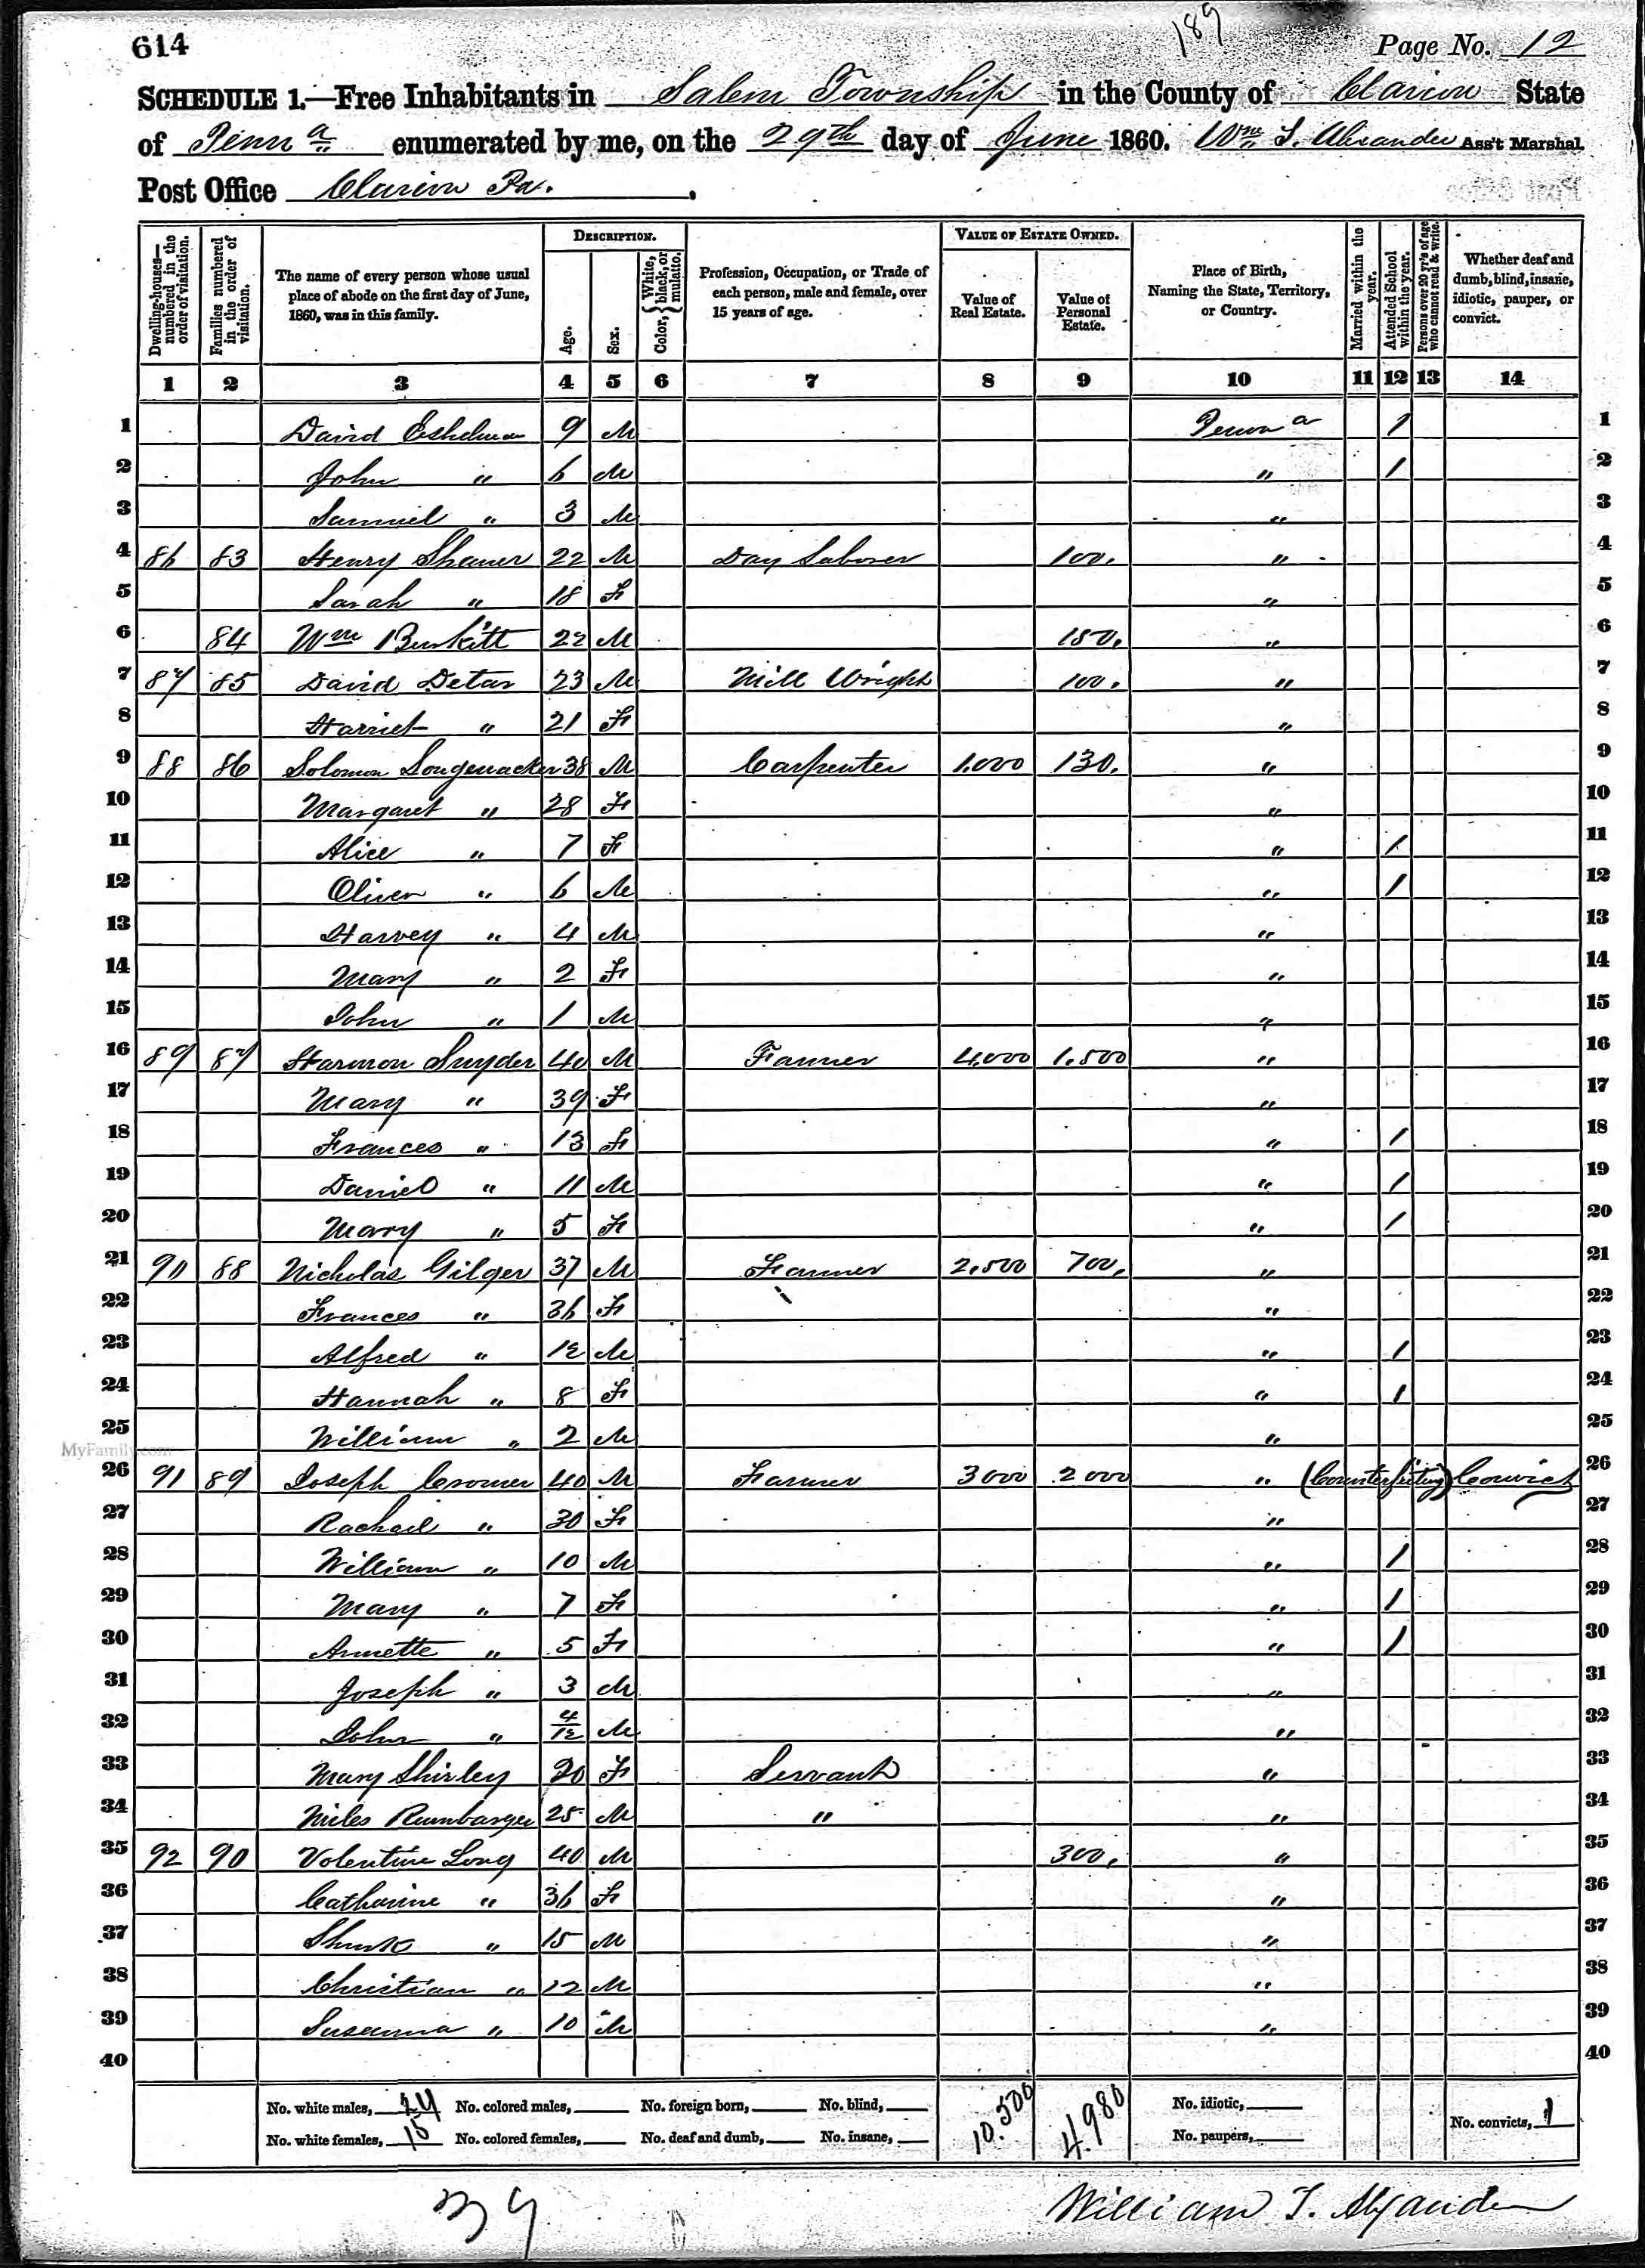 614
189
Page No. 12
SCHEDULE 1.—Free Inhabitants in Salem Township in the County of Clarion State
of Penn a enumerated by me, on the 29th day of June 1860. Wm T. Alexander Ass't Marshal.
Post Office Clarion Pa.
Dwelling-houses—numbered in the order of visitation.
Families numbered in the order of visitation.
The name of every person whose usual place of abode on the first day of June, 1860, was in this family.
DESCRIPTION.
Age.
Sex.
Color, { White, black, or mulatto.
Profession, Occupation, or Trade of each person, male and female, over 15 years of age.
VALUE OF ESTATE OWNED.
Value of Real Estate.
Value of Personal Estate.
Place of Birth, Naming the State, Territory, or Country.
Married within the year.
Attended School within the year.
Persons over 20 yr's of age who cannot read & write.
Whether deaf and dumb, blind, insane, idiotic, pauper, or convict.
1 2 3 4 5 6 7 8 9 10 11 12 13 14
1 David Eshelman 9 M Penn a / 1
2 John " 6 M " / 2
3 Samuel " 3 M " 3
4 86 83 Henry Shaner 22 M Day Laborer 100. " 4
5 Sarah " 18 F " 5
6 84 Wm Burkitt 22 M 150. " 6
7 87 85 David Detar 23 M Mill Wright 100. " 7
8 Harriet " 21 F " 8
9 88 86 Solomon Longenacker 38 M Carpenter 1.000 130. " 9
10 Margaret " 28 F " 10
11 Alice " 7 F " / 11
12 Oliver " 6 M " / 12
13 Harvey " 4 M " 13
14 Mary " 2 F " 14
15 John " 1 M " 15
16 89 87 Harmon Snyder 40 M Farmer 4.000 1.500 " 16
17 Mary " 39 F " 17
18 Frances " 13 F " / 18
19 Daniel " 11 M " / 19
20 Mary " 5 F " / 20
21 90 88 Nicholas Gilger 37 M Farmer 2.500 700. " 21
22 Frances " 36 F " 22
23 Alfred " 12 M " / 23
24 Hannah " 8 F " / 24
25 William " 2 M " 25
MyFamily.com
26 91 89 Joseph Cromer 40 M Farmer 3000 2000 " (Counterfeiting) Convict 26
27 Rachael " 30 F " 27
28 William " 10 M " / 28
29 Mary " 7 F " / 29
30 Annette " 5 F " / 30
31 Joseph " 3 M " 31
32 John " 4/12 M " 32
33 Mary Shirley 20 F Servant " 33
34 Miles Rumbarger 25 M " " 34
35 92 90 Volentine Long 40 M 300. " 35
36 Catharine " 36 F " 36
37 " 15 M " 37
38 Christian " 12 M " 38
39 Susanna " 10 M " 39
40 40
No. white males, 24 No. colored males, No. foreign born, No. blind, 10.500 4.980 No. idiotic,
No. white females, 15 No. colored females, No. deaf and dumb, No. insane, No. paupers, No. convicts, 1
39
William T. Alexander